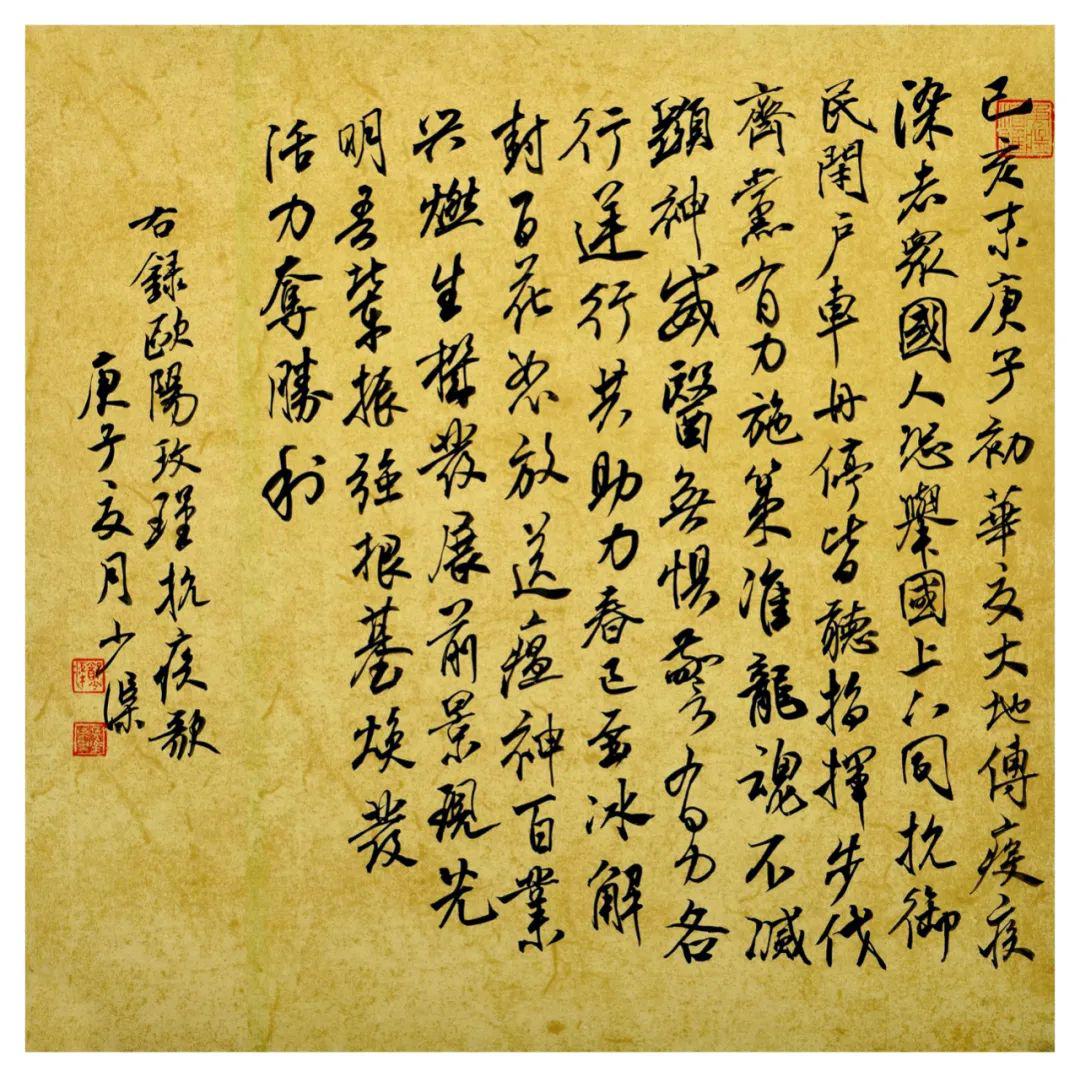 己亥末庚子初華夏大地傳疾疫
染者眾國人恐舉國上下同抗御
民閉戶車舟停皆聽指揮步伐
齊黨有力施策准龍魂不滅
顯神威醫無懼警有力各
行逆行共助力春已至冰解
封百花怒放送瘟神百業
兴燃生機發展前景現光
明吾輩振强根基煥發
活力奪勝利
右録歐陽玫瑾抗疫歌
庚子夏月少